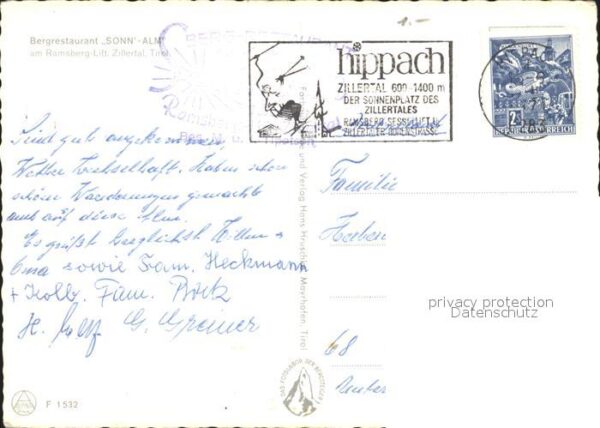 Bergrestaurant „SONN'-ALM"
am Ramsberg-Lift, Zillertal, Tirol
1.-
BERG-RESTAURANT
Ramsberg
hippach
ZILLERTAL 600-1400 m
DER SONNENPLATZ DES
ZILLERTALES
RAMSBERG SESSELLIFT u.
ZILLERTALER HÖHENSTRASSE
REPUBLIK ÖSTERREICH
Sind gut angekommen
Wetter wechselhaft. Haben schon
schöne Wanderungen gemacht
auch auf diese Alm.
Es grüßt herzlichst
Oma sowie Fam. Heckmann
+ Kolb. Fam.
H.
G. Greiner
und Verlag Hans Hruschka, Mayrhofen, Tirol
DAS FOTOLABOR DER BERGSTEIGER
Familie
68
Unter
privacy protection
Datenschutz
F 1532